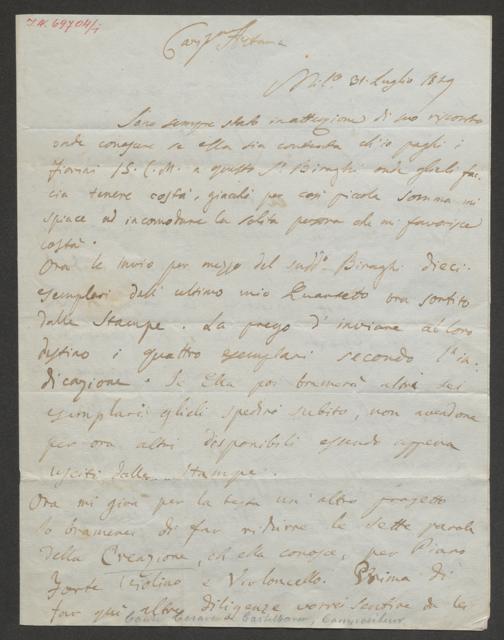 I.N. 69704/1
Car.mo Artaria
Mil.o 31. Luglio 1849
Sono sempre stato in attenzione di suo riscontro
onde conoscere se ella sia contenta ch'io paghi i
Fiorini 15. C. M. a questo Sr. Biraghi onde glieli fac-
cia tenere costà, giacchè per così piccola somma mi
spiace ad incomodare la solita persona che mi favorisce
costà.
Ora le invio per mezzo del sudd.o Biraghi dieci
esemplari dell' ultimo mio Quartetto ora sortito
dalle Stampe. La prego d' inviare al loro
destino i quattro esemplari secondo l'in-
dicazione. Se Ella poi bramerà altri sei
esemplari glieli spedirò subito, non avendone
per ora altri disponibili essendo appena
usciti dalle Stampe.
Ora mi gira per la testa un' altro progetto
Io bramerei di far ridurre le sette parole
della Creazione, ch'ella conosce, per Piano
Forte Violino e Violoncello. Prima di
far qui altre diligenze vorrei sentire da lei
Conte Cesare di Castelbarco, Componisten